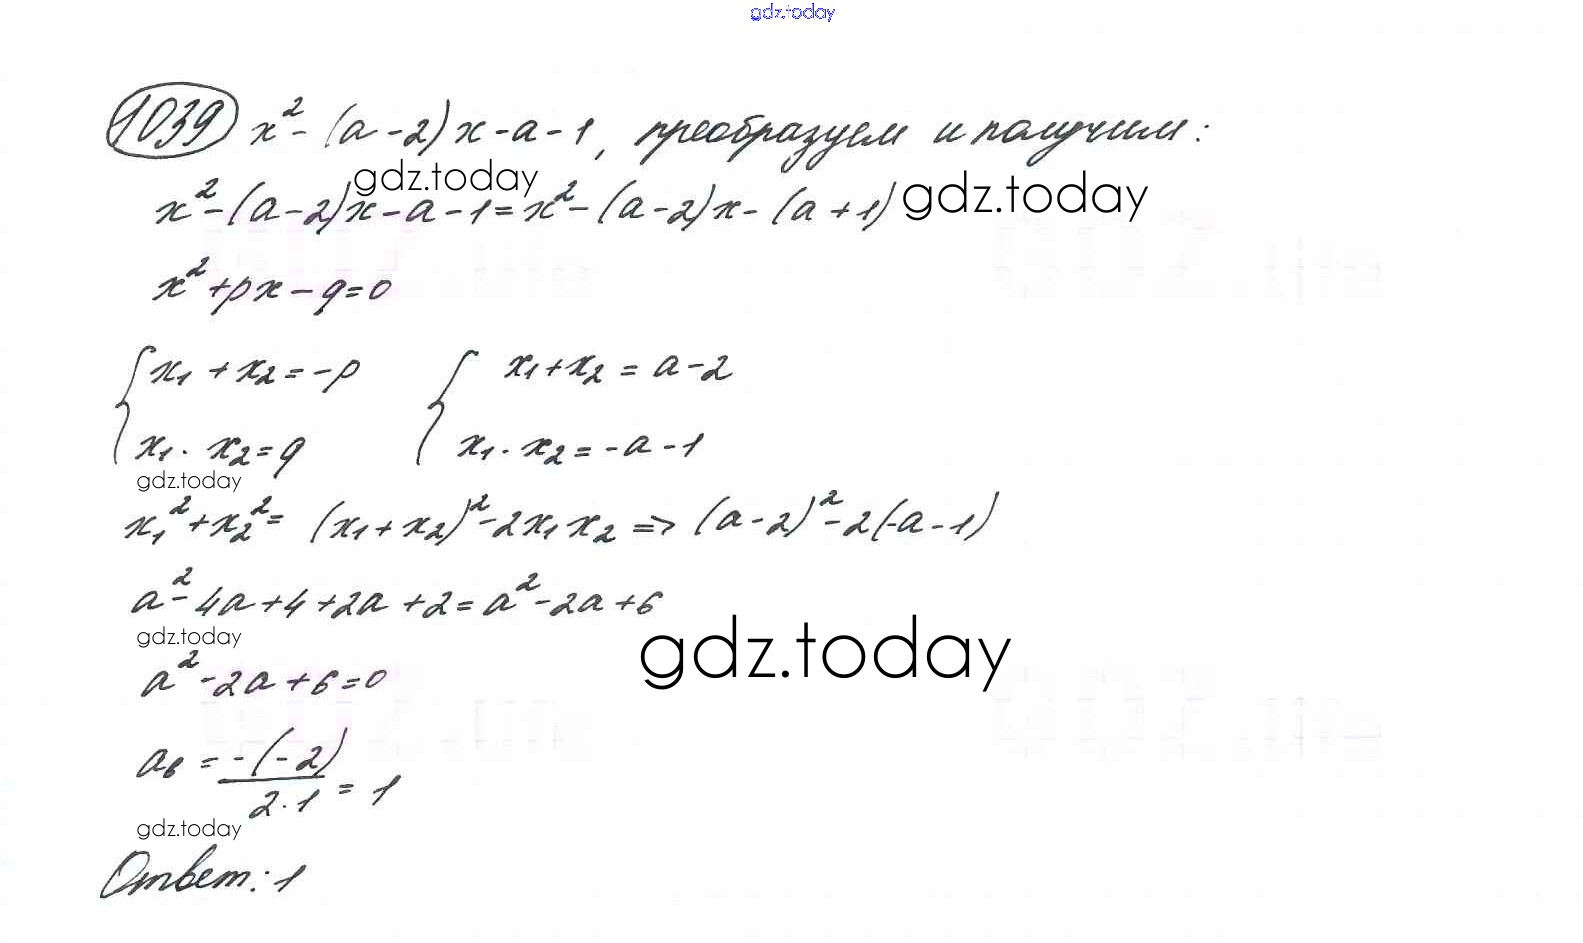 gdz.today
1039 x² - (a - 2)x - a - 1, преобразуем и получим:
gdz.today
x² - (a - 2)x - a - 1 = x² - (a - 2)x - (a + 1) gdz.today
x² + px - q = 0
{ x₁ + x₂ = -p { x₁ + x₂ = a - 2
x₁ · x₂ = q x₁ · x₂ = -a - 1
gdz.today
x₁² + x₂² = (x₁ + x₂)² - 2x₁x₂ => (a - 2)² - 2(-a - 1)
a² - 4a + 4 + 2a + 2 = a² - 2a + 6
gdz.today gdz.today
a² - 2a + 6 = 0
aв = -(-2) / 2·1 = 1
gdz.today
Ответ: 1